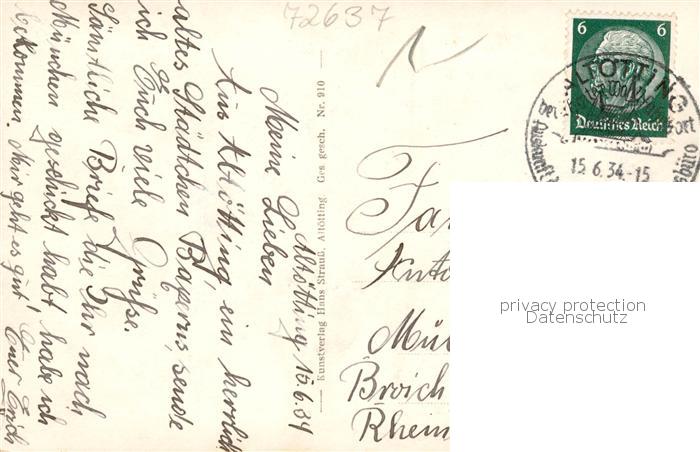 72637
Altötting 15.6.34
Meine Lieben
Aus Altötting, ein herrlich
altes Städtchen Bayerns, sende
ich Euch viele Grüße.
Sämtliche Briefe die Ihr nach
München geschickt habt habe ich
bekommen. Mir geht es gut! Euer Erich
Kunstverlag Hans Strauß, Altötting Ges. gesch. Nr. 910
6 6
Deutsches Reich
ALTÖTTING
15.6.34-15
Fa
Anto
Mü
Broich
Rhein
privacy protection
Datenschutz